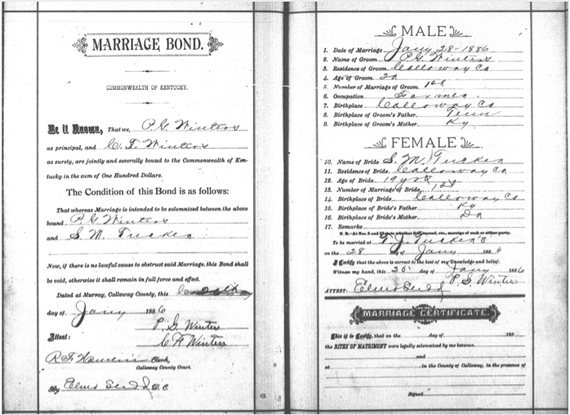 MARRIAGE BOND.
COMMONWEALTH OF KENTUCKY.
Be it Known, That we, P. G. Winters
as principal, and C. F. Winters
as surety, are jointly and severally bound to the Commonwealth of Ken-
tucky in the sum of One Hundred Dollars.
The Condition of this Bond is as follows:
That whereas Marriage is intended to be solemnized between the above
bound P. G. Winters
and S. M. Tucker
Now, if there is no lawful cause to obstruct said Marriage, this Bond shall
be void, otherwise it shall remain in full force and effect.
Dated at Murray, Calloway County, this
day of Jany 1886
P. G. Winters
Attest: C. F. Winters
Clerk,
Calloway County Court.
By D.C.
MALE
1. Date of Marriage Jany 28-1886
2. Name of Groom P. G. Winters
3. Residence of Groom Calloway Co
4. Age of Groom 20
5. Number of Marriage of Groom 1st
6. Occupation Farmer
7. Birthplace Calloway Co
8. Birthplace of Groom's Father Tenn
9. Birthplace of Groom's Mother Ky
FEMALE
10. Name of Bride S. M. Tucker
11. Residence of Bride Calloway Co
12. Age of Bride 19 yrs
13. Number of Marriage of Bride 1st
14. Birthplace of Bride Calloway Co
15. Birthplace of Bride's Father Ky
16. Birthplace of Bride's Mother Do
17. Remarks
To be married at T. J. Tucker's
on the 28 day of Jany 1886
I Certify that the above is correct to the best of my knowledge and belief.
Witness my hand, this 25 day of Jany 1886
ATTEST: P. G. Winters
MARRIAGE CERTIFICATE.
This is to Certify, that on the day of 188
the RITES OF MATRIMONY were legally solemnized by me between
and
at in the County of Calloway, in the presence of
and
Signed